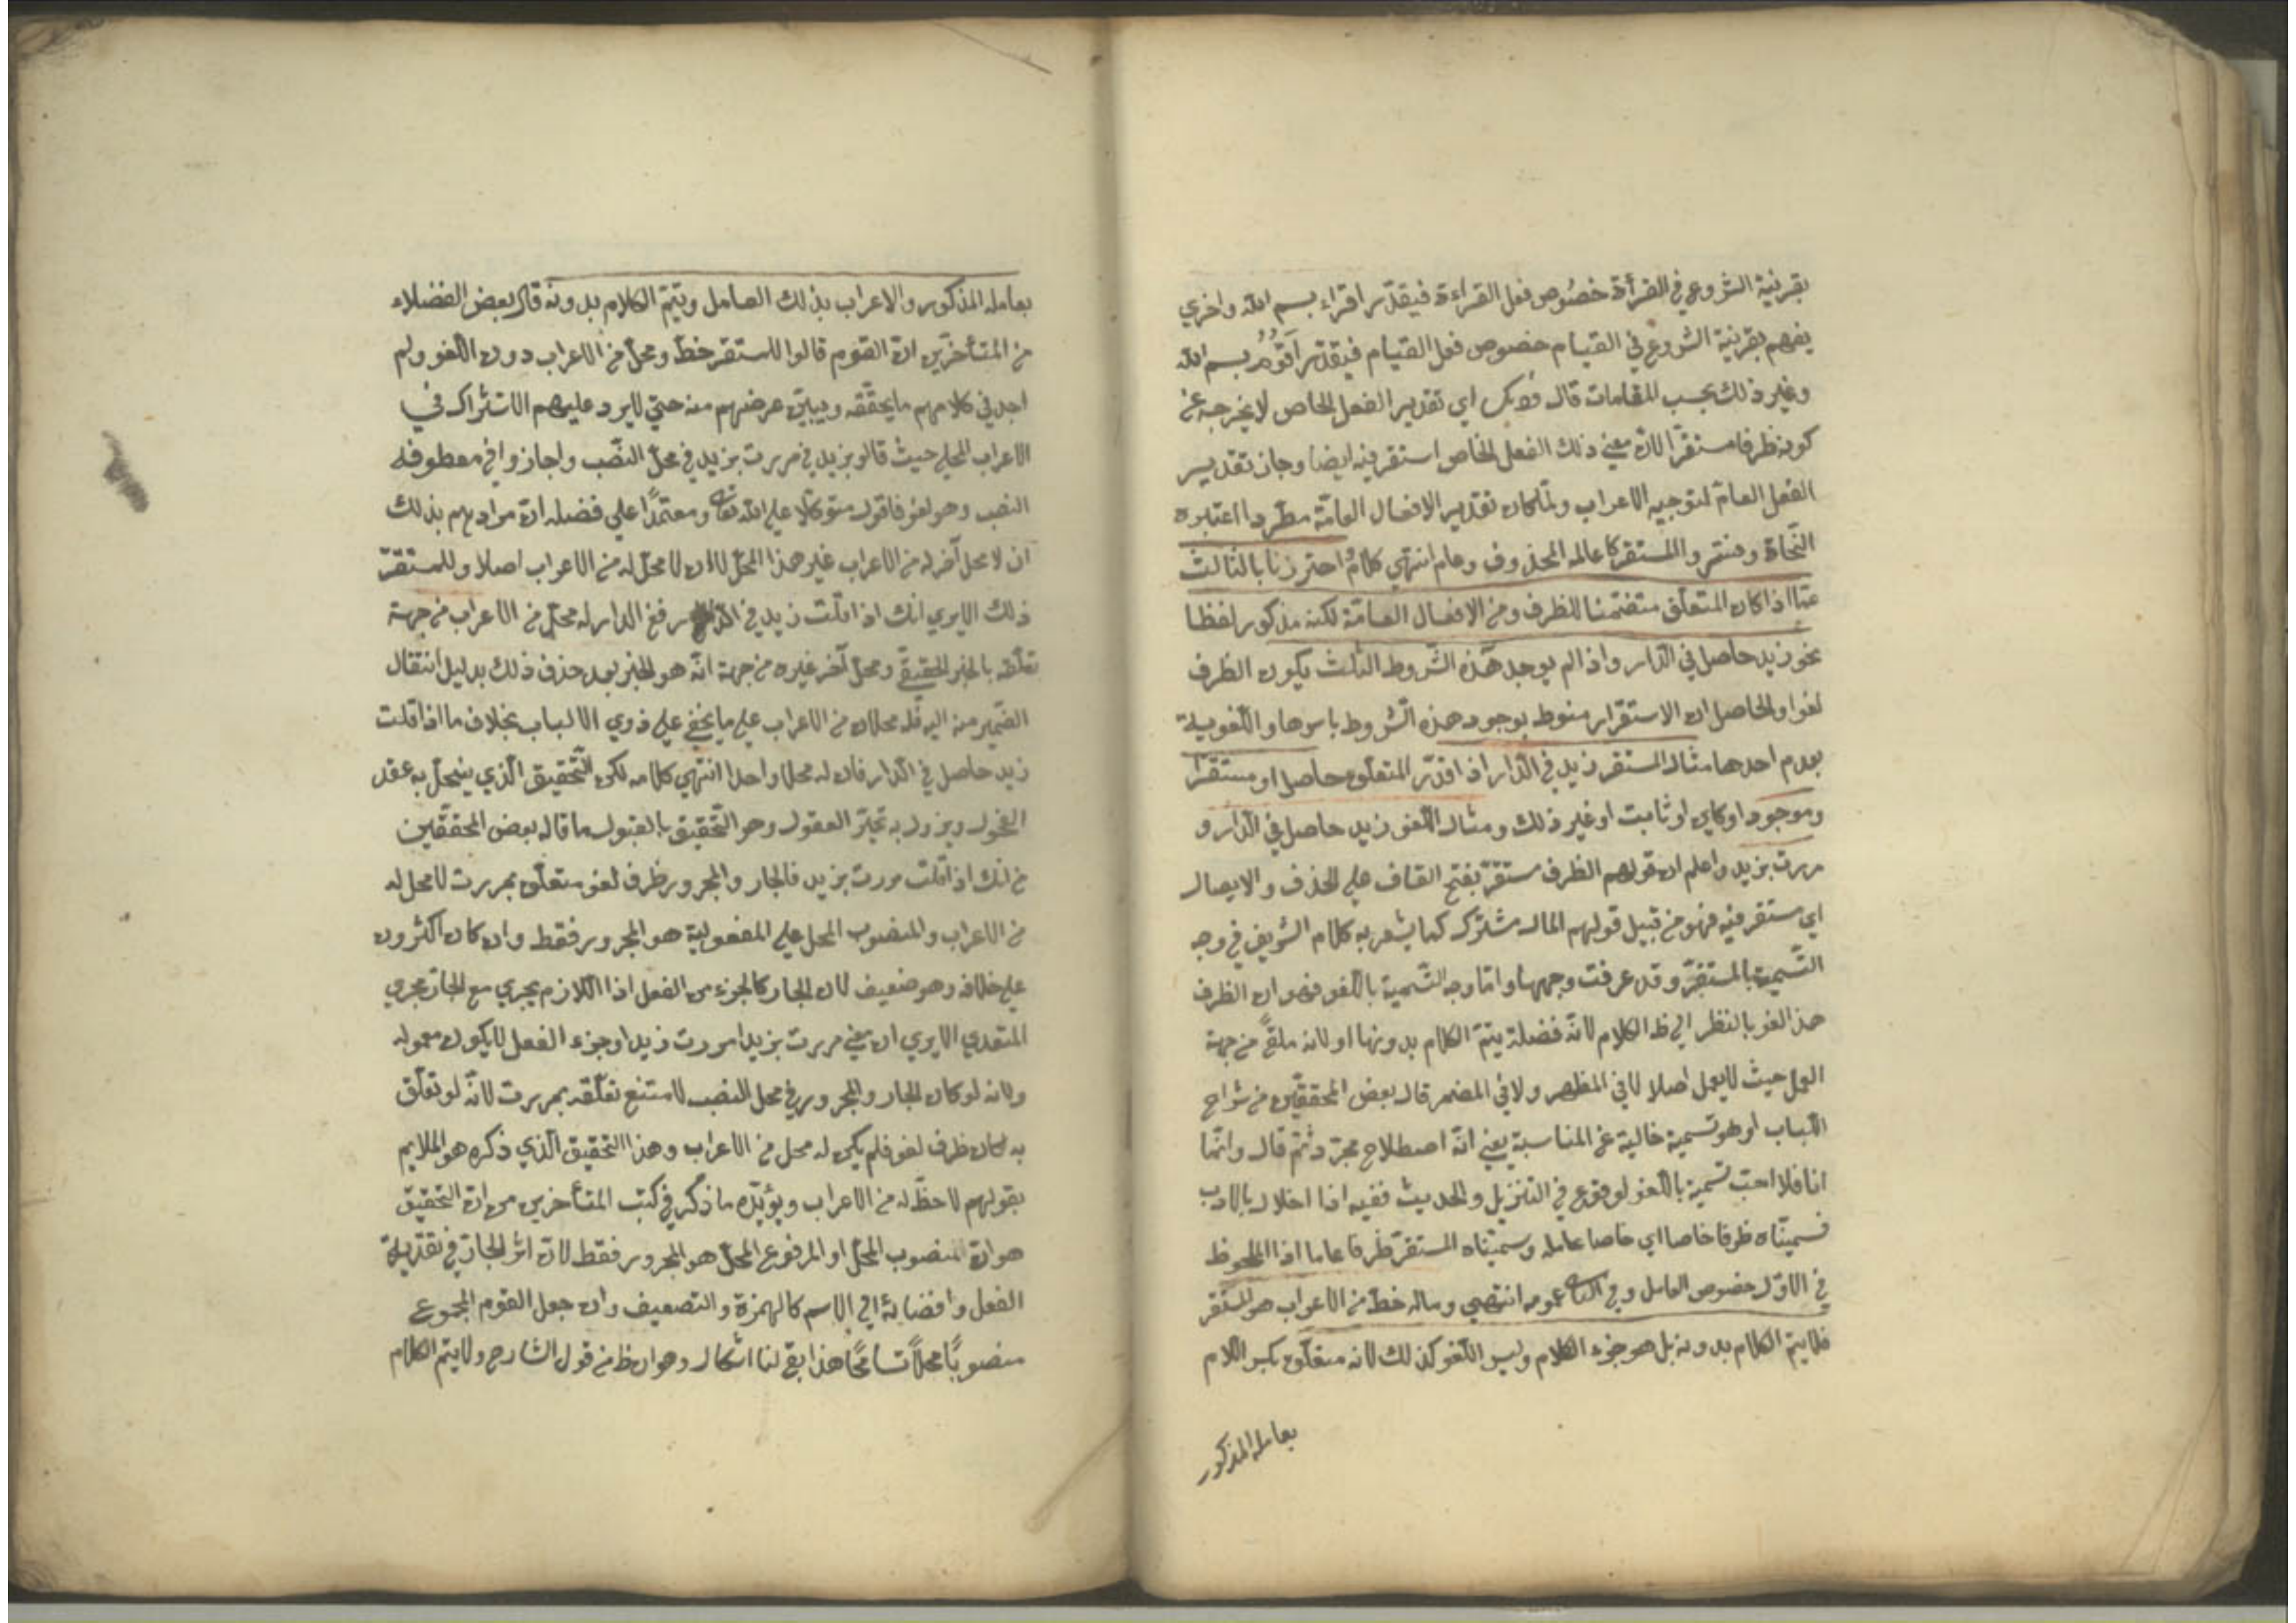 بقرنية الشروع في القرأة خصُوص فعل القراءة فيقدّر اقراء بسم الله واخري
يفهم بقرنية الشروع في القيام خصوص فعل القيام فيقدّر اَقُومُ بسم الله
وغير ذلك بحسب المقامات قال اي تقدير الفعل الخاص لا يخرجه عن
كونه ظرفا مستقرّا لانّ معني ذلك الفعل الخاص استقر فيه ايضا وجاز تقدير
الفعل العامّ لتوجيه الاعراب ولمّا كان تقدير الافعال العامّة مطّردا اعتبره
النّحاة وفسّر والمستقر كا عامله المحذوف وعام انتهي كلامُ احترزنا بالثالث
عمّا اذا كان المتعلّق متضمّنا للظرف ومن الافعال العامّة لكنه مذكور لفظا
نحو زيد حاصل في الدّار واذا لم يوجد هذه الشّروط الثلث يكون الظرف
لغوا والحاصل ان الاستقرار منوط بوجود هذه الشّروط باسرها واللّغويية
بعدم احدها مثال المستقر زيد في الدّار اذا قدّر المتعلّق حاصل او مستقرّ
وموجود او كاين او ثابت او غير ذلك ومثال اللّغو زيد حاصل في الدّار و
مررت بزيد واعلم ان قولهم الظرف مستقرّ بفتح القاف علي الحذف والايصال
اي مستقر فيه فهو من قبيل قولهم المال مشترك كما يشعر به كلام الشريف في وجه
التّسمية بالمستقرّ وقد عرفت وجهها وامّا وجه التّسمية باللّغو فهو ان الظرف
هذا لغو بالنظر الي ظ الكلام لانّه فضلة يتمّ الكلام بدونها او لانه ملقًي من جهة
العمل حيث لا يعمل اصلا لا في المظهر ولا في المضمر قال بعض المحققّين من شراح
اللّباب او هو تسمية خالية عن المناسبة يعني انّه اصطلاح مجرّد ثمّ قال وانّما
انا فلا احبّ تسمية باللّغو لوقوع في التنزيل والحديث ففيه اذا اخلال بالادب
فسميّناه ظرفا خاصا اي خاصا عامله وسمّيناه المستقرّ ظرفا عاما اذا الملحوظ
في الاوّل خصوص العامل وفي الثاني عمومه انتهي وماله حظّ من الاعراب هو المستقر
فلا يتمّ الكلام بدونه بل هو جزء الكلام وليس اللّغو كذلك لانه متعلّق بكسر اللام
بعامله المذكور
بعامله المذكور والاعراب بذلك العامل ويتمّ الكلام بدونه قال بعض الفضلاء
من المتأخّرين انّ القوم قالوا للمستقر حظّ ومحلّ من الاعراب دون اللّغو ولم
اجد في كلامهم ما يحقّقه ويبيّن غرضهم منه حتّي لا يرد عليهم الاشتراك في
الاعراب المحلي حيث قالو بزيد في مررت بزيد في محلّ النّصب واجازوا في معطوفه
النصب وهو لغو فاقول متوكّلا علي الله تعا ومعتمدًا علي فضله انّ مرادهم بذلك
ان لا محل آخر له من الاعراب غير هذا المحلّ لا ان لا محلّ له من الاعراب اصلا وللمستقرّ
ذلك الا يري انك اذا قلت زيد في الدار رفع الدار له محلّ من الاعراب من جهة
تعلّقه بالخبر الحقيقيّ ومحلّ آخر غيره من جهة انّه هو الخبر بعد حذف ذلك بدليل انتقال
الضّمير منه اليه فله محلان من الاعراب علي ما يخفي علي ذوي الالباب بخلاف ما اذا قلت
زيد حاصل في الدّار فان له محلا واحدا انتهي كلامه لكن التّحقيق الّذي ينحلّ به عقد
الفحول ويزول به تحيّر العقول وهو التّحقيق بالقبول ما قاله بعض المحققّين
من انك اذا قلت مررت بزيد فالجار والمجرور ظرف لغو متعلّق بمررت لا محل له
من الاعراب والمنصوب المحل علي المفعولية هو المجرور فقط وان كان اكثرون
علي خلافه وهو ضعيف لان الجار كالجزء من الفعل اذا اللازم يجري مع الجارّ مجري
المتعدي الا يري ان معني مررت بزيد امررت زيدا وجزء الفعل لا يكون معموله
ولانه لو كان الجار والمجرور في محل النصب لامتنع تعلّقه بمررت لانّه لو تعلّق
به لكان ظرف لغو فلم يكن له محل من الاعراب وهذا التحقيق الّذي ذكره هو الملايم
بقولهم لا حظّ له من الاعراب ويؤيّده ما ذكر في كتب المتأخرين من انّ التحقيق
هو انّ المنصوب المحلّ او المرفوع المحلّ هو المجرور فقط لانّ اثر الجارّ في تعدّيلة
الفعل وافضائه الي الاسم كالهمزة والتضعيف وان جعل القوم المجموع
منصوبًا محلاًّ تسامحًا هذا بقي لنا اشكال وهو ان ظ من قول الشارح ولا يتم الكلام